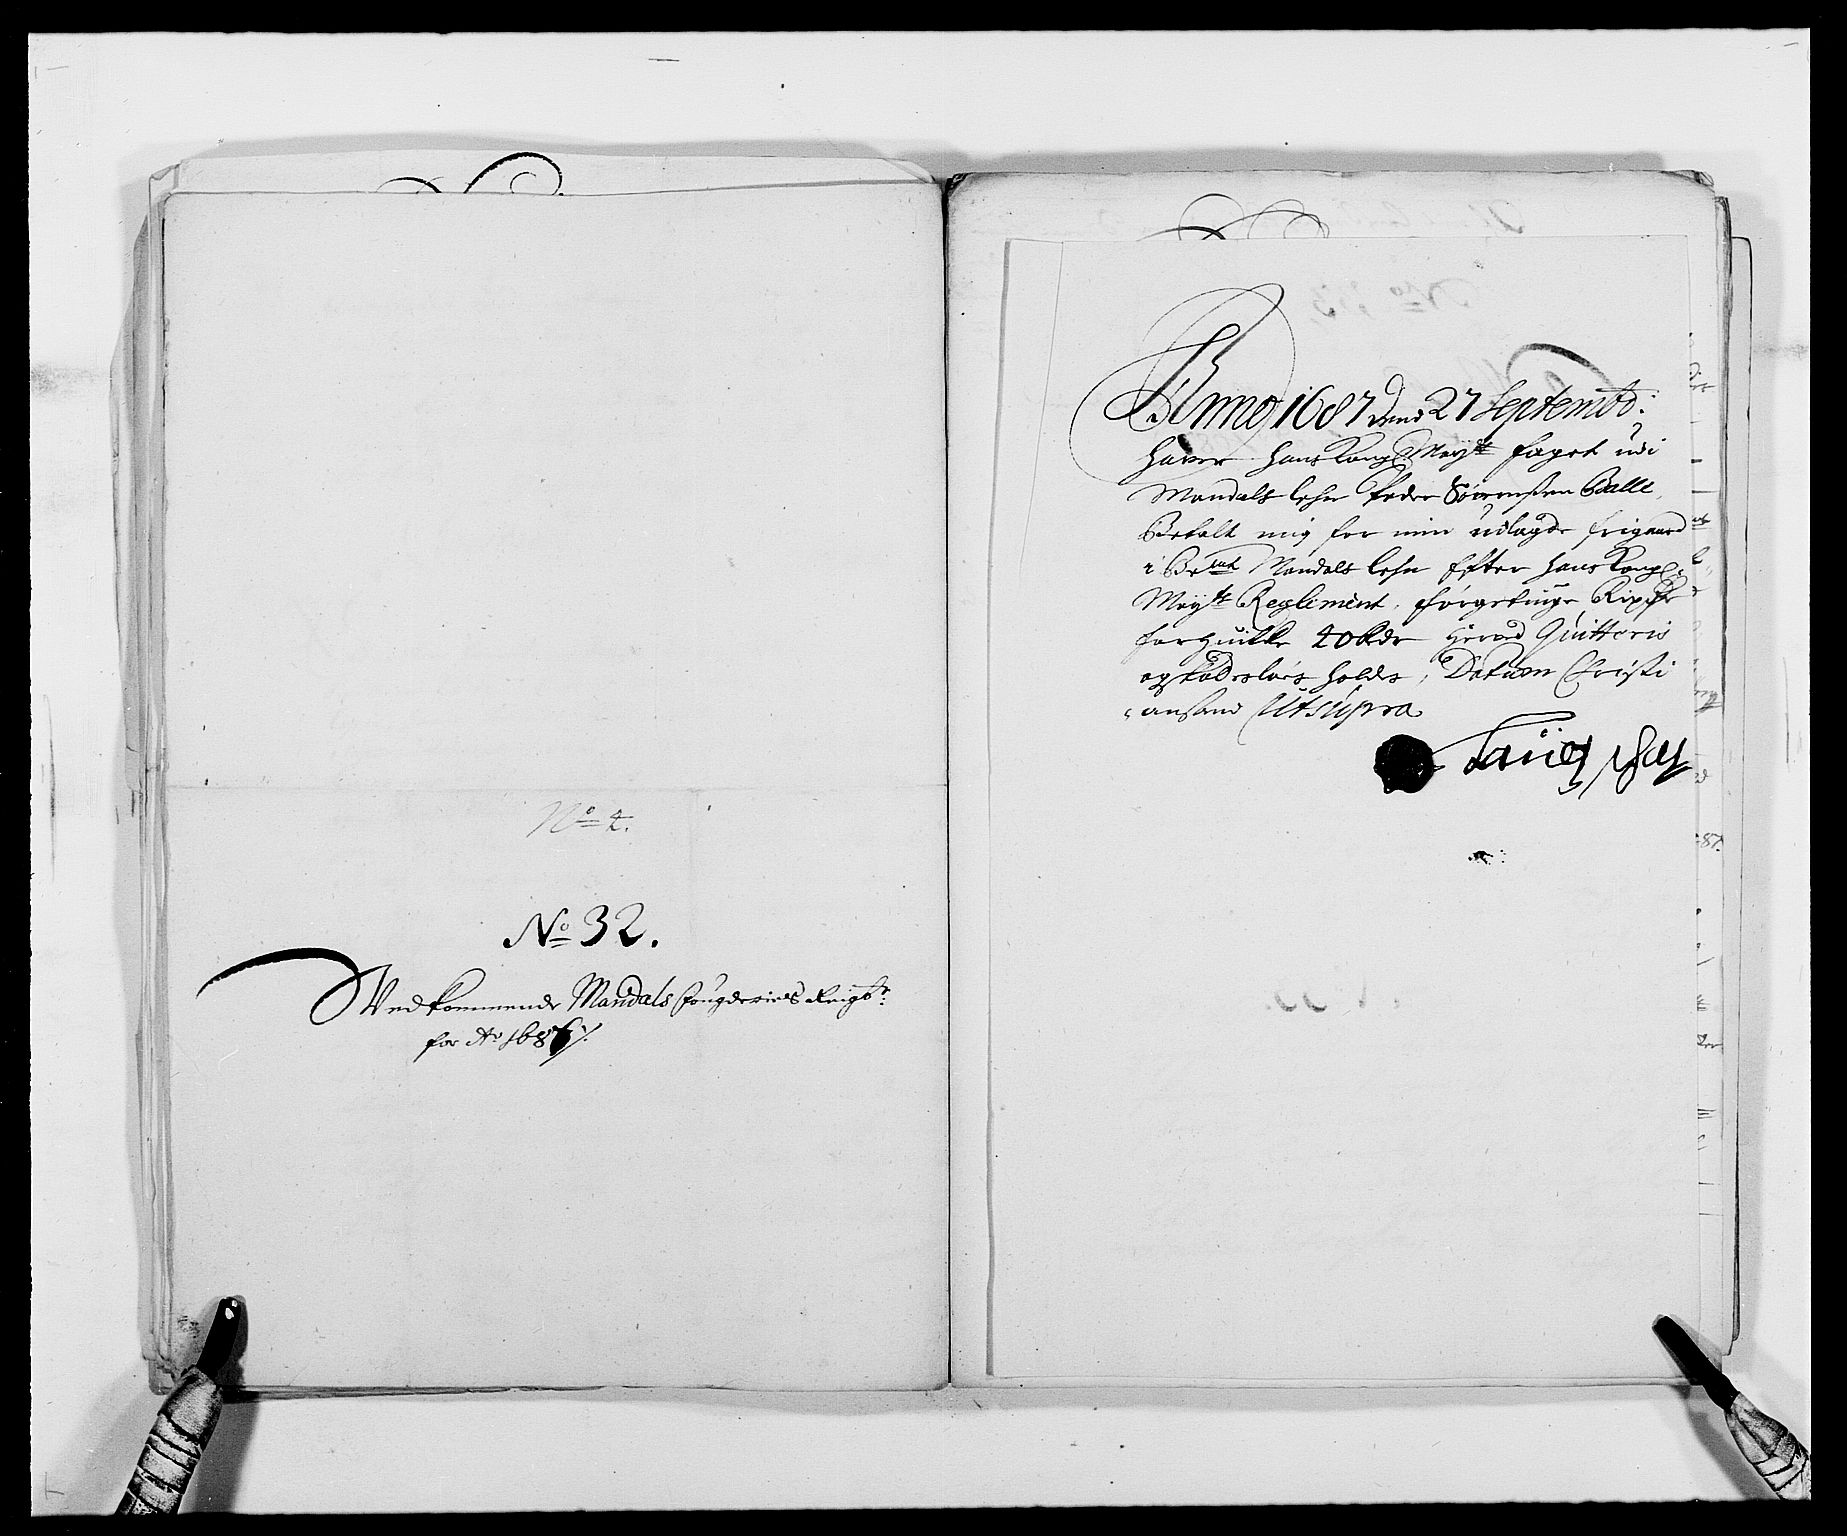 No 2.
No 32.
Vedkommende Mandals fougderies Reigb:
for Ao 1686
Anno 1687 dend 27 Septembr:
hafver hans Kongl Mayts foget udi
Mandals lehn Peder Sörensen Balle
Betalt mig for min udlagde frigaard
i Bemt Mandals lehn Efter hans Kongl:
Mayts Reglement, førgetiuge Rixdr
forhuilke 40 Rdr Herved Quitteris
og skadesløes holdes, Datum Christi
ansand Ut supra